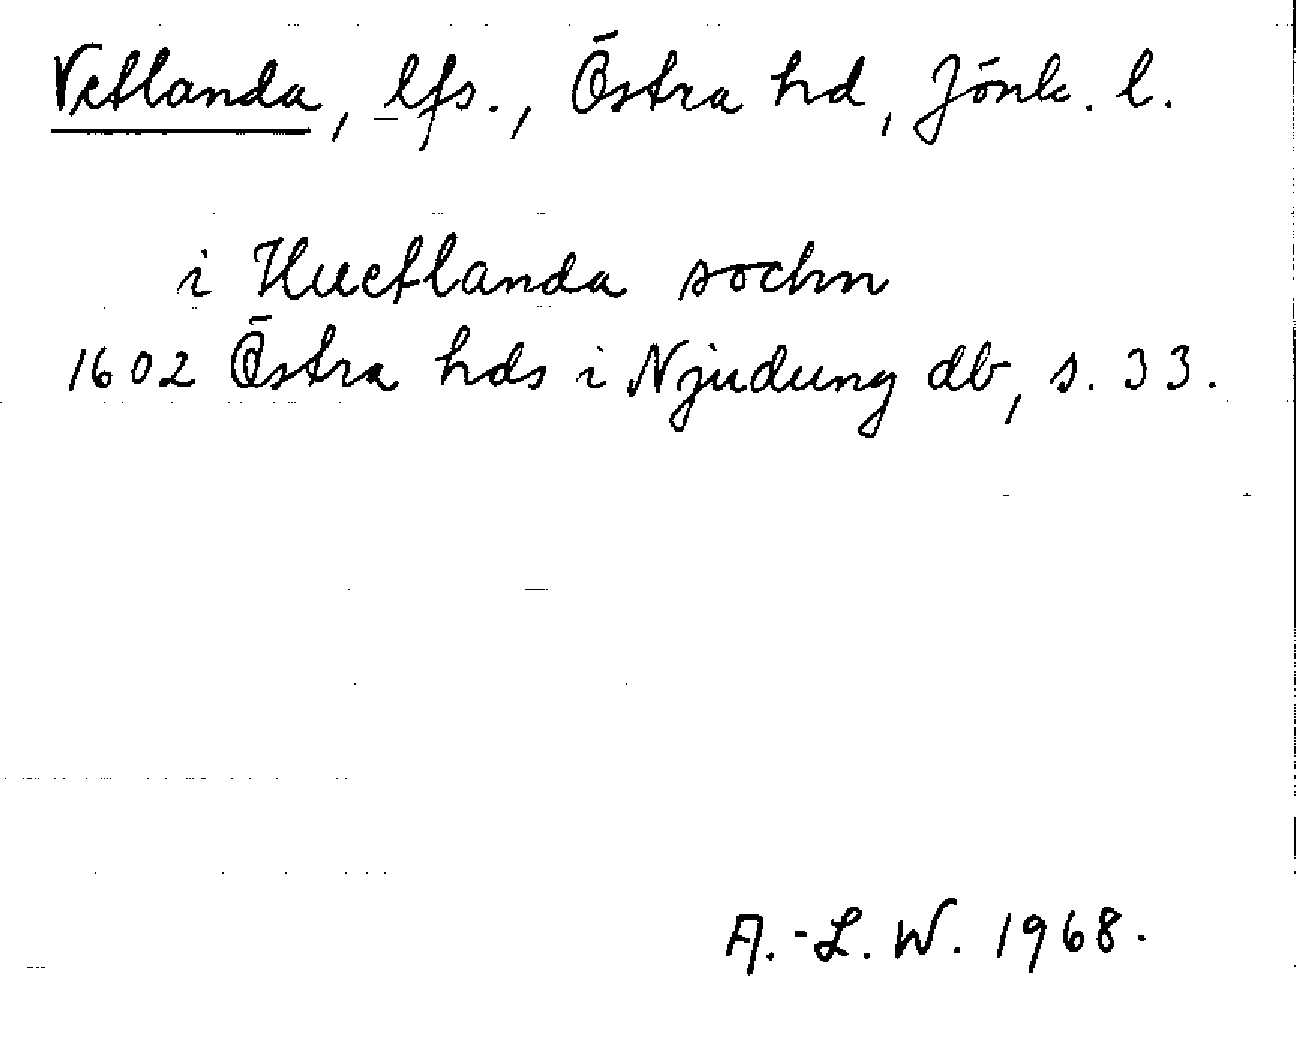 Vetlanda, lfs., Östra hd, Jönk. l.
i Huetlanda sochn
1602 Östra hds i Njudung db, s. 33.
A.-L. W. 1968.